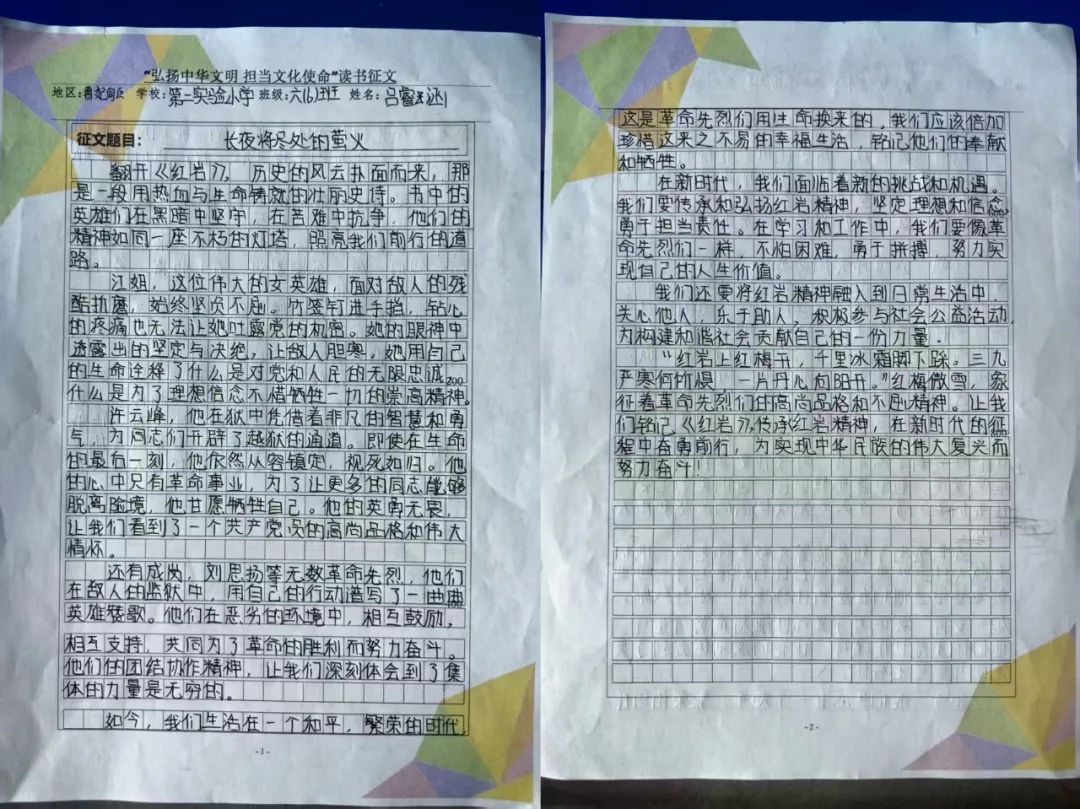 “弘扬中华文明 担当文化使命”读书征文
地区：曹妃甸区 学校：第一实验小学 班级：六(6)班 姓名：吕睿
征文题目： 长夜将尽处的萤火
翻开《红岩》，历史的风云扑面而来，那
是一段用热血与生命铸就的壮丽史诗。书中的
英雄们在黑暗中坚守，在苦难中抗争，他们的
精神如同一座不朽的灯塔，照亮我们前行的道
路。
江姐，这位伟大的女英雄，面对敌人的残
酷折磨，始终坚贞不屈。竹签钉进手指，钻心
的疼痛也无法让她吐露党的机密。她的眼神中
透露出的坚定与决绝，让敌人胆寒。她用自己
的生命诠释了什么是对党和人民的无限忠诚，
200
什么是为了理想信念不惜牺牲一切的崇高精神。
许云峰，他在狱中凭借着非凡的智慧和勇
气，为同志们开辟了越狱的通道。即使在生命
的最后一刻，他依然从容镇定，视死如归。他
的心中只有革命事业，为了让更多的同志能够
脱离险境，他甘愿牺牲自己。他的英勇无畏，
让我们看到了一个共产党员的高尚品格和伟大
情怀。
还有成岗，刘思扬等无数革命先烈，他们
在敌人的监狱中，用自己的行动谱写了一曲曲
英雄赞歌。他们在恶劣的环境中，相互鼓励，
相互支持，共同为了革命的胜利而努力奋斗。
他们的团结协作精神，让我们深刻体会到了集
体的力量是无穷的。
如今，我们生活在一个和平，繁荣的时代，
-1-
这是革命先烈们用生命换来的，我们应该倍加
珍惜这来之不易的幸福生活，铭记他们的奉献
和牺牲。
在新时代，我们面临着新的挑战和机遇。
我们要传承和弘扬红岩精神，坚定理想和信念，
勇于担当责任。在学习和工作中，我们要像革
命先烈们一样，不怕困难，勇于拼搏，努力实
现自己的人生价值。
我们还要将红岩精神融入到日常生活中，
关心他人，乐于助人，积极参与社会公益活动，
为构建和谐社会贡献自己的一份力量。
“红岩上红梅开，千里冰霜脚下踩。三九
严寒何所惧，一片丹心向阳开。”红梅傲雪，象
征着革命先烈们的高尚品格和不屈精神。让我
们铭记《红岩》，传承红岩精神，在新时代的征
程中奋勇前行，为实现中华民族的伟大复兴而
努力奋斗！
-2-